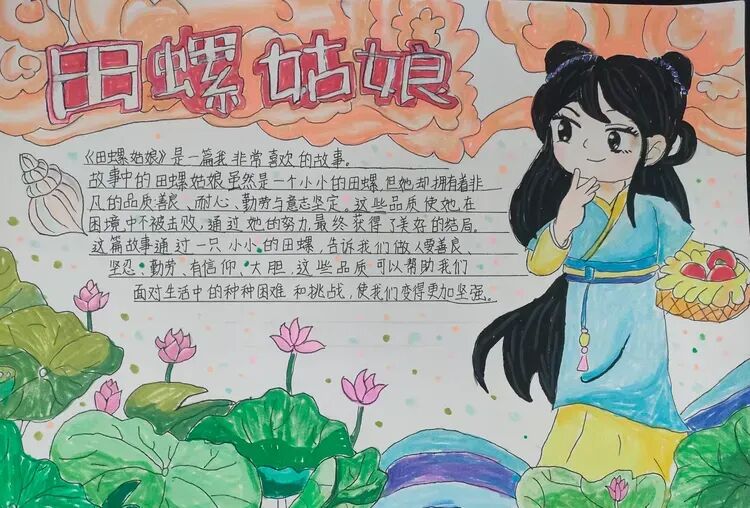 田螺姑娘
《田螺姑娘》是一篇我非常喜欢的故事.
故事中的田螺姑娘虽然是一个小小的田螺,但她却拥有着非
凡的品质善良、耐心、勤劳与意志坚定。这些品质使她在
困境中不被击败,通过她的努力,最终获得了美好的结局.
这篇故事通过一只小小的田螺,告诉我们做人要善良、
坚忍、勤劳、有信仰、大胆,这些品质可以帮助我们
面对生活中的种种困难和挑战,使我们变得更加坚强。